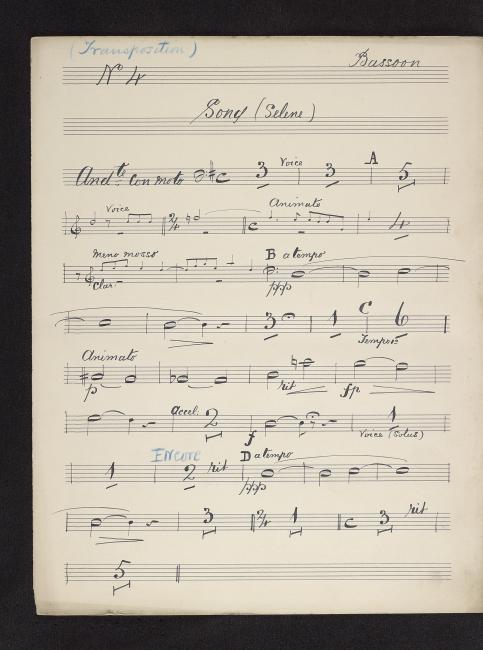 (Transposition)
Bassoon
No 4
Song (Selene)
Andte Con moto C 3 Voice 3 A 5
Voice 2/4 C Animato 4
meno mosso
Clar. B a tempo
ppp
3 1 C 6
Animato
p rit fp
accel. 2 f 1
Voice (Solus)
1 Encore 2 rit D a tempo
ppp
3 2/4 1 C 3 rit
5